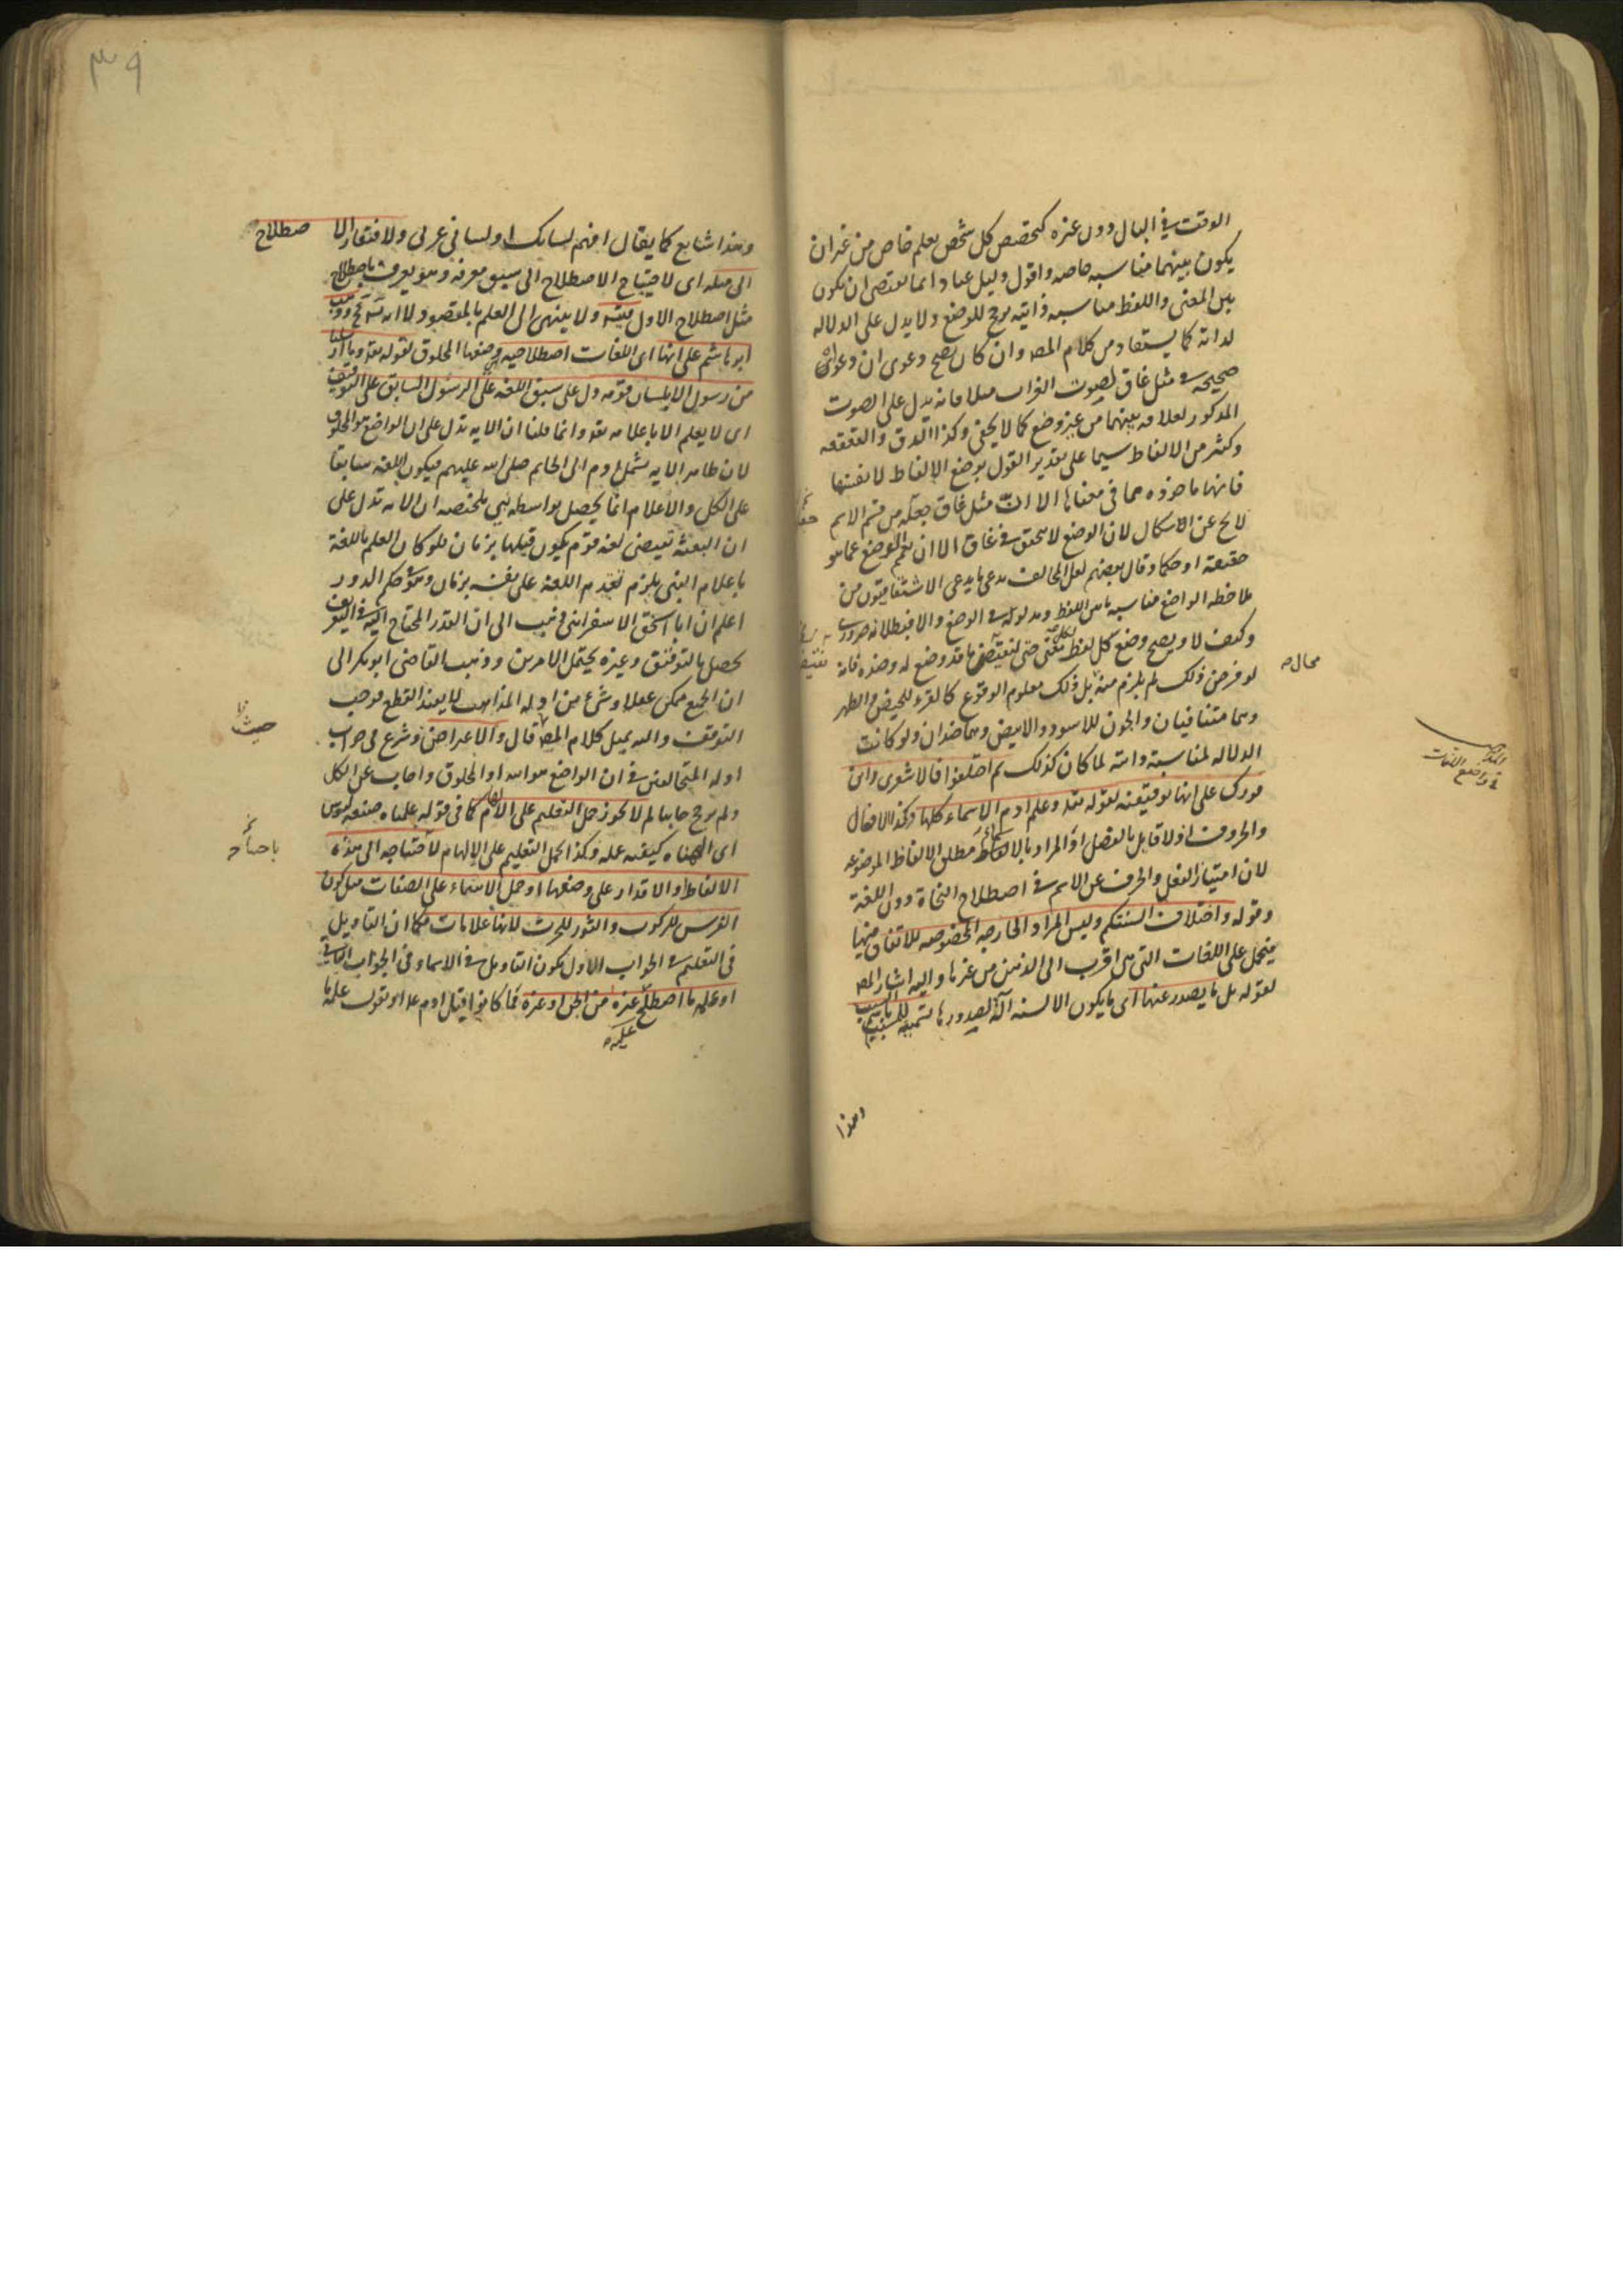 الوقت في البال دون غيره كتخصيص كل شخص بعلم خاص من غير ان
يكون بينهما مناسبه خاصه واقول دليل عباد انما يقتضى ان يكون
بين المعنى واللفظ مناسبه ذاتيه يرجح للوضع ولا يدل على الدلاله
لذاته كما يستفاد من كلام المص وان كان يصح دعوى ان دعواه
صحيحه في مثل غاق لصوت الغراب مثلا فانه يدل على الصوت
المذكور لعلاقه بينهما من غير وضع كما لا يخفى وكذا الدق والقهقهه
وكثير من الالفاظ سيما على تقدير القول بوضع الالفاظ لانفسها
فانها ماخوذه مما في معناها الا ان مثل غاق جعله من قسم الاسم
لا يخ عن الاشكال لان الوضع لا يتحقق في غاق الا ان يعم الوضع عما هو
حقيقة او حكما وقال بعضهم لعل المخالف يدعى ما يدعى الاشتقاقيون من
ملاحظه الواضع مناسبه ما بين اللفظ ومدلوله في الوضع والا فبطلانه ضرورى
وكيف لا ويصح وضع كل لفظ لكل معنى حتى لنقيض ما قد وضع له وضده فانه
لو فرض ذلك لم يلزم منه محال بل ذلك معلوم الوقوع كالقرء للحيض والطهر
وهما متنافيان والجون للاسود والابيض وهما ضدان ولو كانت
الدلاله لمناسبة ذاتيه لما كان كذلك ثم اختلفوا فالاشعرى وابن
فورك على انها توقيفيه لقوله تعه وعلم ادم الاسماء كلها وكذا الافعال
والحروف اذ لا قايل بالفصل او المراد بالاسماء مطلق الالفاظ الموضوعه
لان امتياز الفعل والحرف عن الاسم في اصطلاح النحاة دون اللغة
وقوله واختلاف السنتكم وليس المراد الجارحه المخصوصه للاتفاق فيها
فيحمل على اللغات التي هي اقرب الى الذهن من غيرها واليه اشار المص
بقوله بل ما يصدر عنها اى ما يكون الالسنه آلة لصدورها تسميه للمسبب باسم السبب
وهذا
المذاهب
في واضع اللغات
محال
وهذا شايع كما يقال افهم لسانك او لساني عربى ولافتقار الاصطلاح
الى مثله اى لاحتياج الاصطلاح الى سبق معرفه وهو يعرف باصطلاح
مثل اصطلاح الاول ولا ينتهى الى العلم بالمقصود لا انه وذهب
ابو هاشم على انها اى اللغات اصطلاحيه وضعها المخلوق لقوله تعه وما ارسلنا
من رسول الا بلسان قومه دل على سبق اللغه على الرسول السابق على التوقيف
اى لا يعلم الا باعلامه تعه وانما قلنا ان الايه تدل على ان الواضع هو المخلوق
لان ظاهر الايه يشمل ادم الى الخاتم صلى الله عليهم فيكون اللغه سابقا
على الكل والاعلام انما يحصل بواسطه نبي ملخصه ان الايه تدل على
ان البعثه تقتضى لغه قوم يكون قبلها بزمان فلو كان العلم باللغة
باعلام النبى يلزم تقدم اللغه على نفسه بزمان وهو محكم الدور
اعلم ان ابا اسحق الاسفراينى ذهب الى ان القدر المحتاج اليه في التعريف
يحصل بالتوقيف وغيره يحتمل الامرين وذهب القاضى ابوبكر الى
ان الجميع ممكن عقلا وشىء من ادله المذاهب لا يفيد القطع فوجب
التوقف واليه يميل كلام المص حيث قال والاعتراض وشرع في جواب
ادله المتخالفين في ان الواضع هو الله او المخلوق واجاب عن الكل
ولم يرجح جانبا لم لا يجوز حمل التعليم على الالهام كما في قوله علمناه صنعه لبوس
اى الهمناه كيفيه عمله وكذا يحمل التعليم على الالهام لاحتياجه الى هذه
الالفاظ والاقدار على وضعها او حمل الاسماء على الصفات مثل كون
الفرس للركوب والثور للحرث لانها علامات فكما ان التاويل
في التعليم في الجواب الاول يكون التاويل في الاسماء وفي الجواب الثانى
او علمه ما اصطلح عليه غيره من الجن وغيره مما كانوا قبل ادم